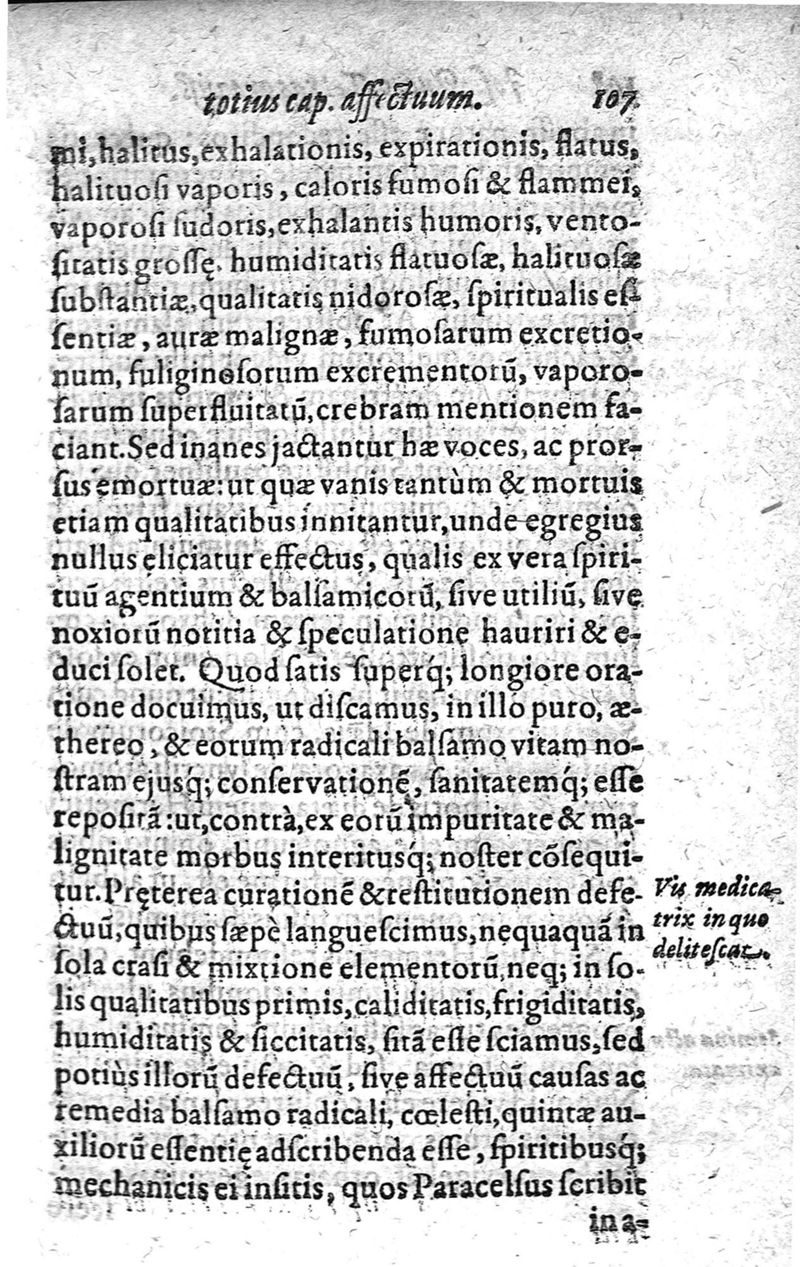 totius cap. affectuum. 107
mi, halitus, exhalationis, expirationis, flatus,
halituosi vaporis, caloris fumosi & flammei,
vaporosi sudoris, exhalantis humoris, vento-
sitatis grossę, humiditatis flatuosæ, halituosæ
substantiæ, qualitatis nidorosæ, spiritualis es-
sentiæ, auræ malignæ, fumosarum excretio-
num, fuliginosorum excrementorũ, vaporo-
sarum superfluitatũ, crebram mentionem fa-
ciant. Sed inanes jactantur hæ voces, ac pror-
sus emortuæ: ut quæ vanis tantùm & mortuis
etiam qualitatibus innitantur, unde egregius
nullus eliciatur effectus, qualis ex vera spiri-
tuũ agentium & balsamicorũ, sive utiliũ, sive
noxiorũ notitia & speculatione hauriri & e-
duci solet. Quod satis superq́; longiore ora-
tione docuimus, ut discamus, in illo puro, æ-
thereo, & eorum radicali balsamo vitam no-
stram ejusq́; conservationẽ, sanitatemq́; esse
repositã: ut, contrà, ex eorũ impuritate & ma-
lignitate morbus interitusq́; noster cõsequi-
tur. Pręterea curationẽ & restitutionem defe-
ctuũ, quibus sæpè languescimus, nequaquã in
sola crasi & mixtione elementorũ, neq; in so-
lis qualitatibus primis, caliditatis, frigiditatis,
humiditatis & siccitatis, sitã esse sciamus, sed
potiùs illorũ defectuũ, sive affectuũ causas ac
remedia balsamo radicali, cœlesti, quintæ au-
xiliorũ essentię adscribenda esse, spiritibusq́;
mechanicis ei insitis, quos Paracelsus scribit
in a-
Vis medica-
trix in quo
delitescat.